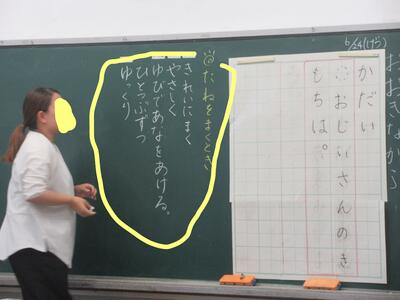 6/24(げつ)
おおきなかぶ
かだい
おじいさんのき
もちは。
たねをまくとき
きれいにまく
やさしく
ゆびであなをあける。
ひとつぶずつ
ゆっくり